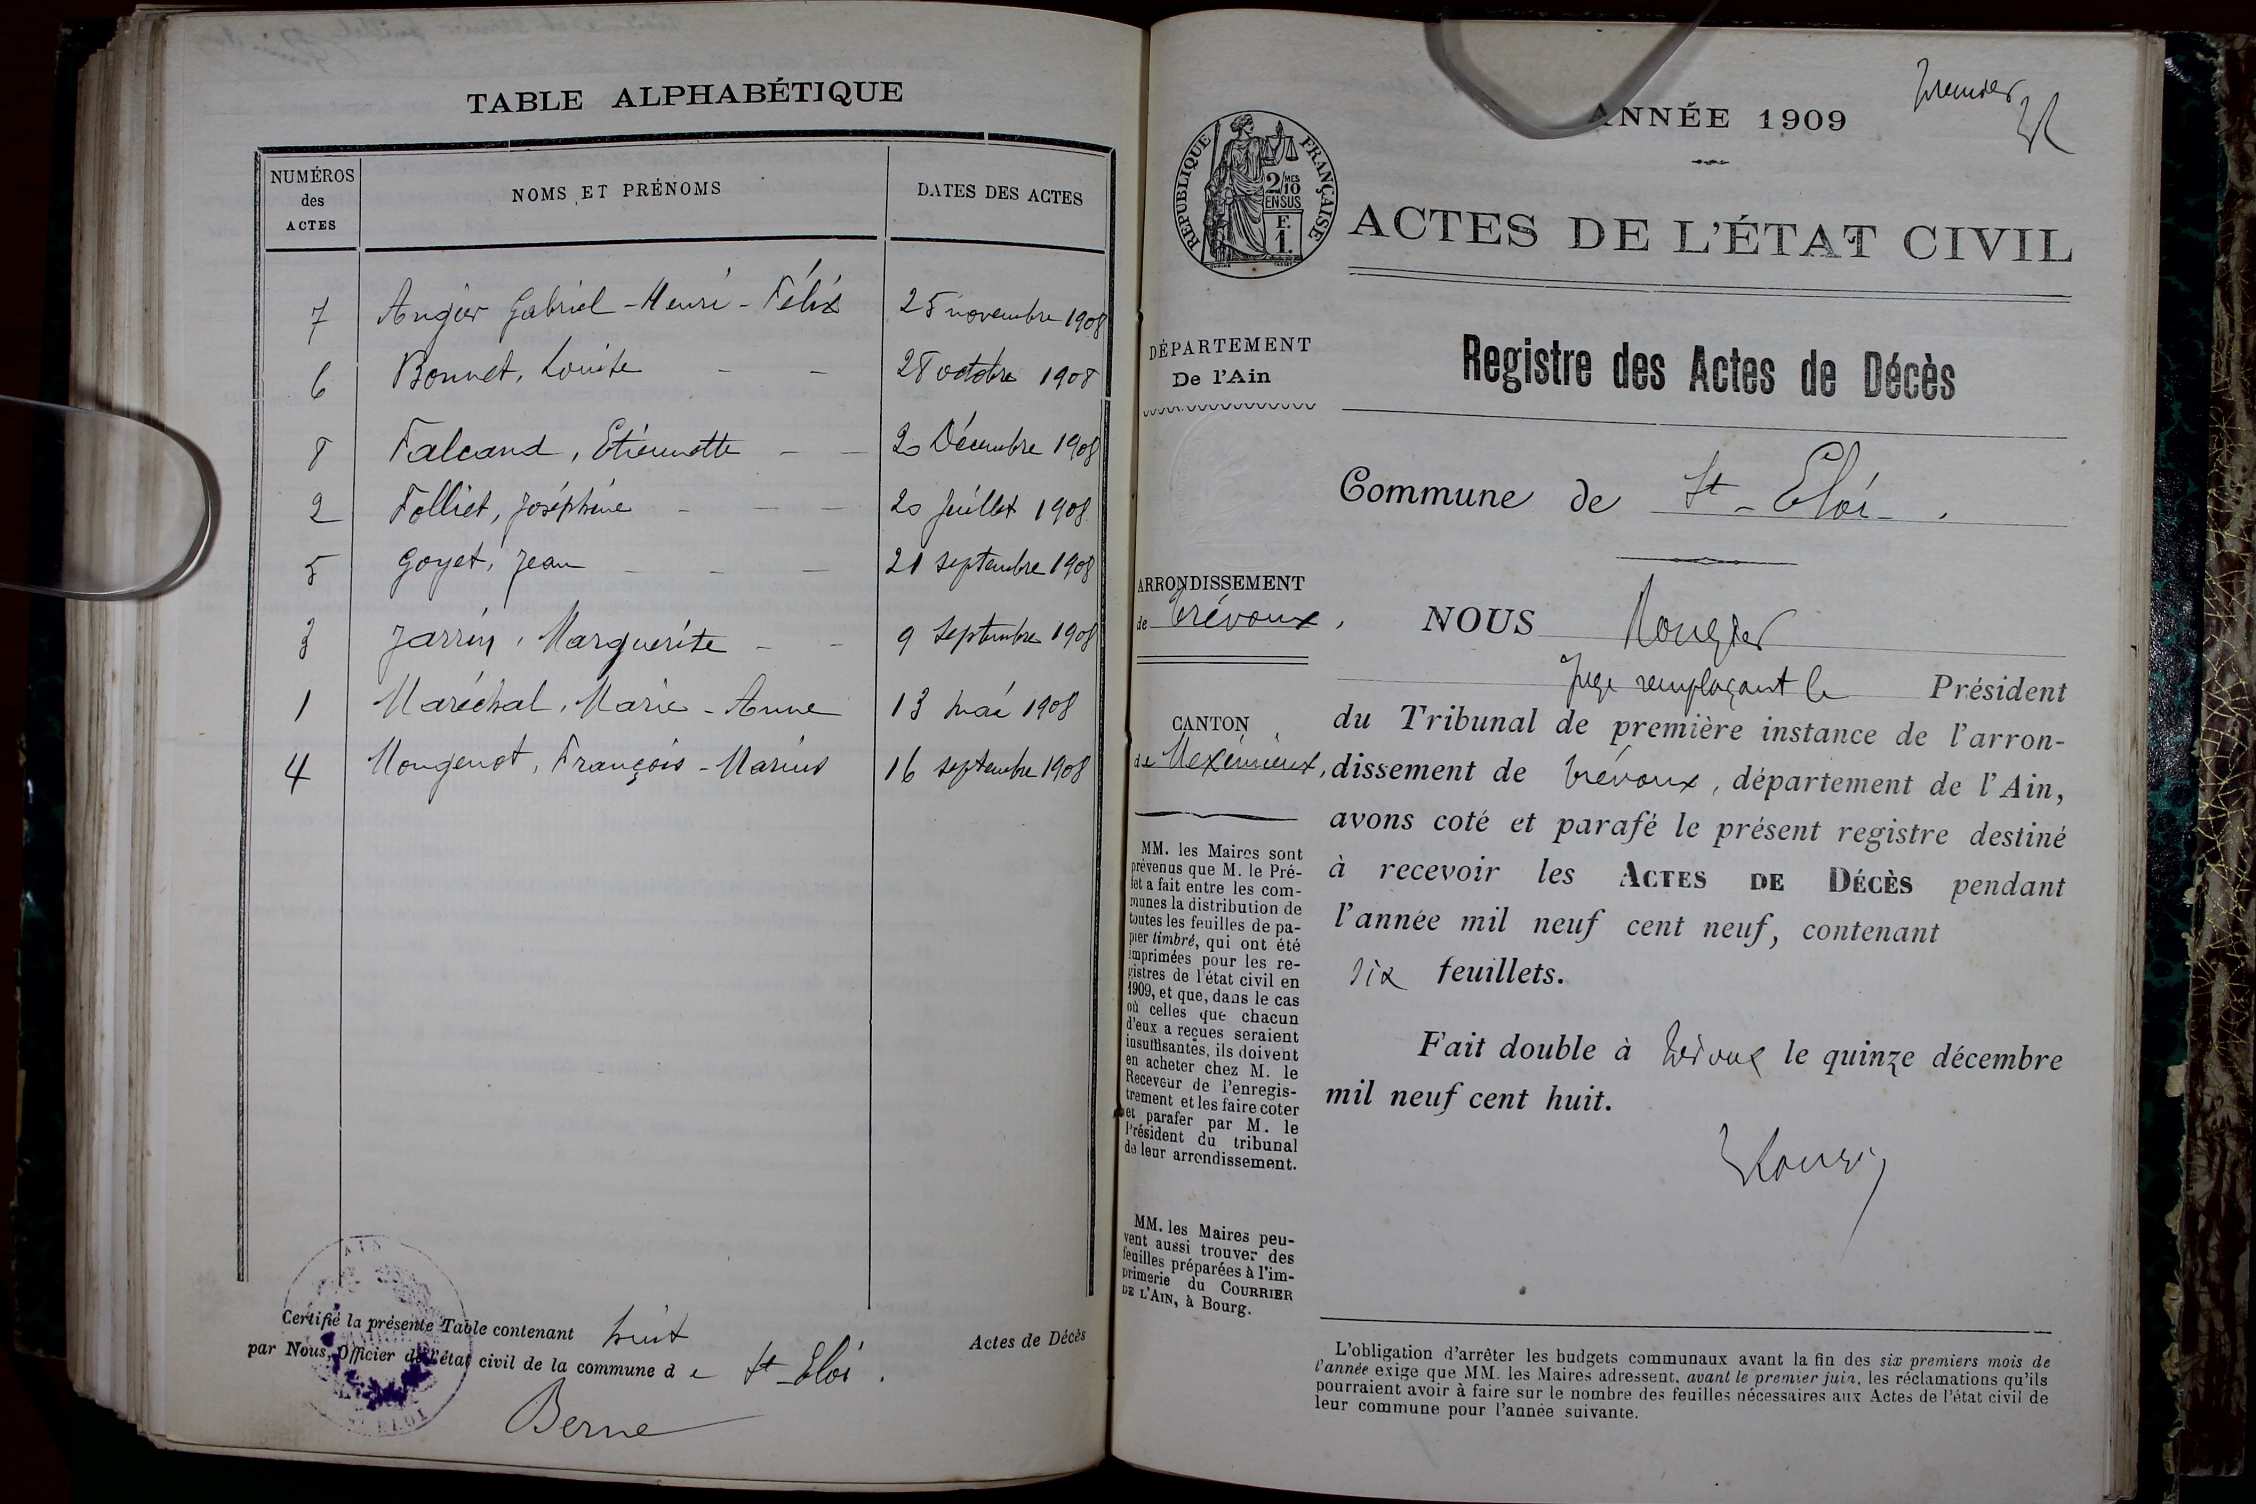 TABLE ALPHABÉTIQUE
NUMÉROS des ACTES NOMS ET PRÉNOMS DATES DES ACTES
7 Augier Gabriel - Henri - Félix 25 novembre 1908
6 Bonnet, Louise - - 28 octobre 1908
8 Falcand, Etiennette - - 20 Décembre 1908
2 Folliet, Joséphine - - - 20 Juillet 1908
5 Goyet, Jean - - - 21 septembre 1908
3 Jarrin, Marguerite - - 9 septembre 1908
1 Maréchal, Marie - Anne 13 mai 1908
4 Mongenot, François - Marius 16 septembre 1908
Certifié la présente Table contenant huit Actes de Décès
par Nous, Officier de l'état civil de la commune d e St-Eloi.
Berne
AIN
premier
ANNÉE 1909
RÉPUBLIQUE FRANÇAISE
2/10 MES
EN SUS
F.
1.
ACTES DE L'ÉTAT CIVIL
DÉPARTEMENT
De l'Ain
Registre des Actes de Décès
Commune de St-Eloi.
ARRONDISSEMENT
de Trévoux,
CANTON
de Meximieux,
MM. les Maires sont
prévenus que M. le Pré-
fet a fait entre les com-
munes la distribution de
toutes les feuilles de pa-
pier timbré, qui ont été
imprimées pour les re-
gistres de l'état civil en
1909, et que, dans le cas
où celles que chacun
d'eux a reçues seraient
insuffisantes, ils doivent
en acheter chez M. le
Receveur de l'enregis-
trement et les faire coter
et parafer par M. le
Président du tribunal
de leur arrondissement.
MM. les Maires peu-
vent aussi trouver des
feuilles préparées à l'im-
primerie du COURRIER
DE L'AIN, à Bourg.
NOUS Rougier
Juge remplaçant le Président
du Tribunal de première instance de l'arron-
dissement de Trévoux, département de l'Ain,
avons coté et parafé le présent registre destiné
à recevoir les ACTES DE DÉCÈS pendant
l'année mil neuf cent neuf, contenant
six feuillets.
Fait double à Trévoux le quinze décembre
mil neuf cent huit.
L'obligation d'arrêter les budgets communaux avant la fin des six premiers mois de
l'année exige que MM. les Maires adressent, avant le premier juin, les réclamations qu'ils
pourraient avoir à faire sur le nombre des feuilles nécessaires aux Actes de l'état civil de
leur commune pour l'année suivante.